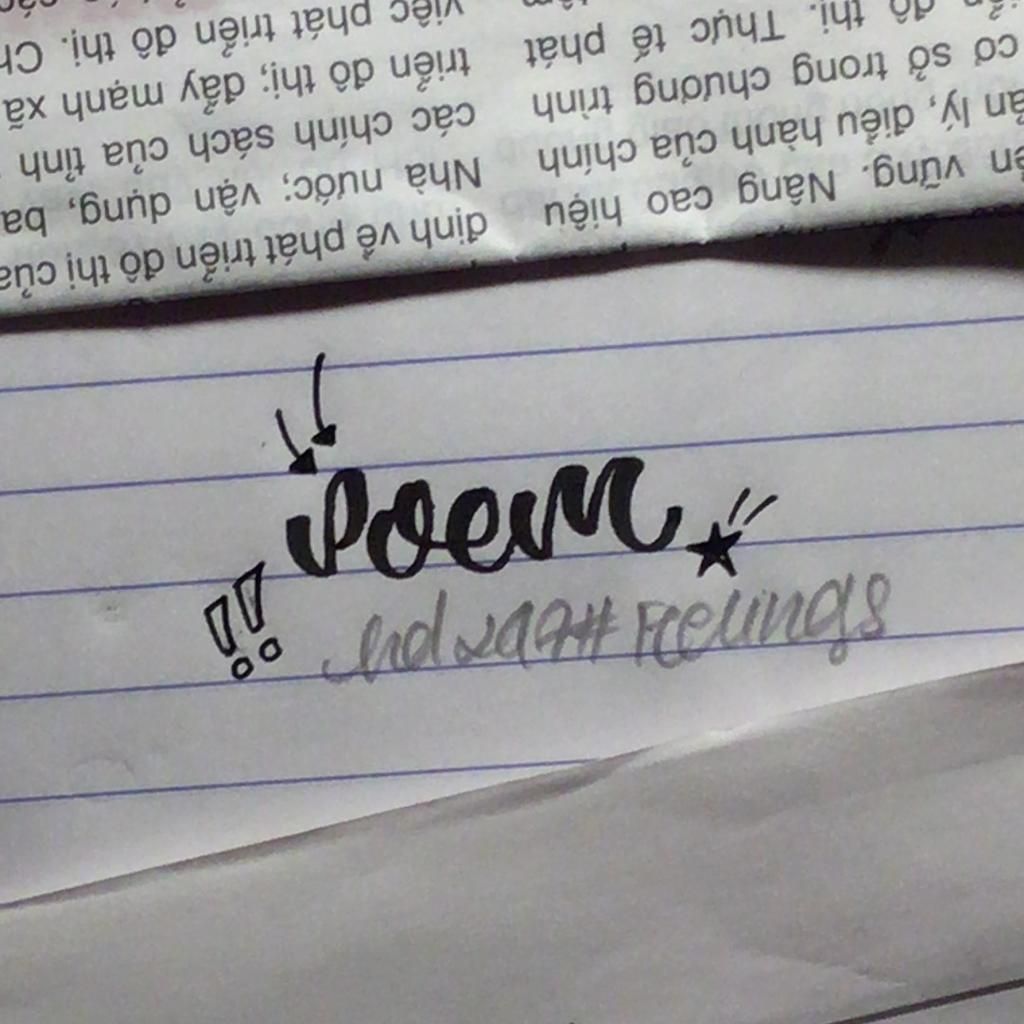 việc phát triển đô thị.
triển đô thị; đẩy mạnh xã
các chính sách của tỉnh
Nhà nước; vận dụng, ba
định về phát triển đô thị của
đô thị. Thực tế phát
cơ sở trong chương trình
lý, điều hành của chính
vững. Nâng cao hiệu
Poem
!! #Feelings